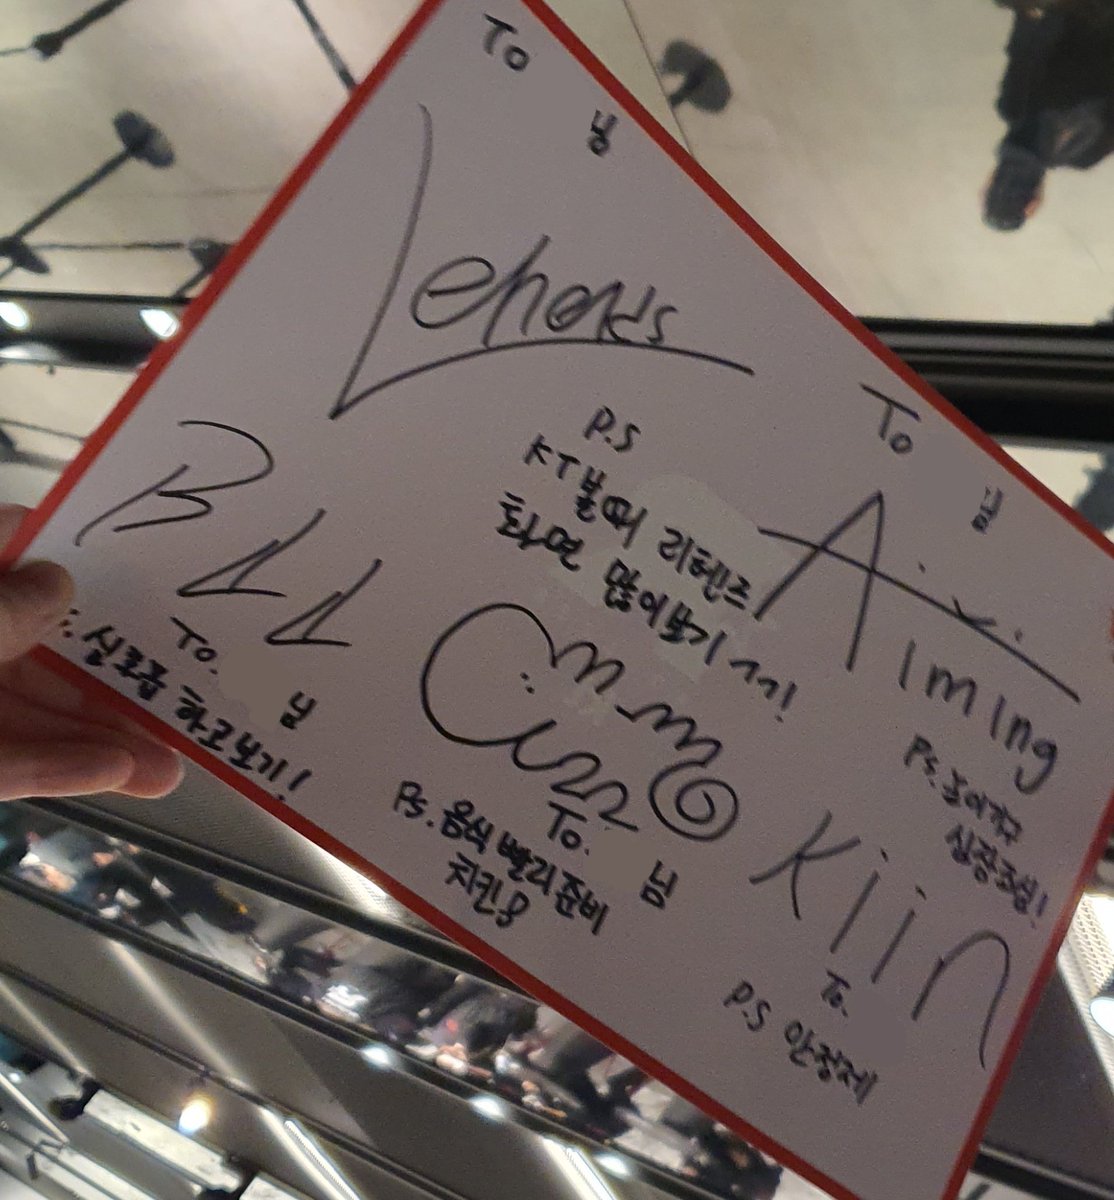 To
님
Lehends
P.S
KT볼때 리헨즈
화면 많이보기 ㄱㄱ!
To
님
Aiming
Ps.
심장조심!
BDD
To.
님
하고보기!
To.
님
Ps. 음식 빨리준비
치킨응
Kiin
To.
P.S 안정제